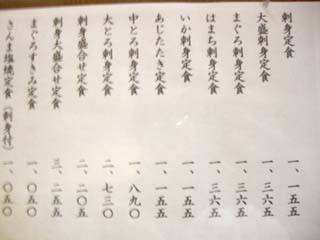 刺身定食 一、一五五
大盛刺身定食 一、三六五
まぐろ刺身定食 一、三六五
はまち刺身定食 一、三六五
いか刺身定食 一、一五五
あじたたき定食 一、一五五
中とろ刺身定食 一、八九〇
大とろ刺身定食 二、七三〇
刺身盛合せ定食 二、二〇五
刺身大盛合せ定食 三、二五五
まぐろすきみ定食 一、〇五〇
さんま塩焼定食(刺身付) 一、〇五〇